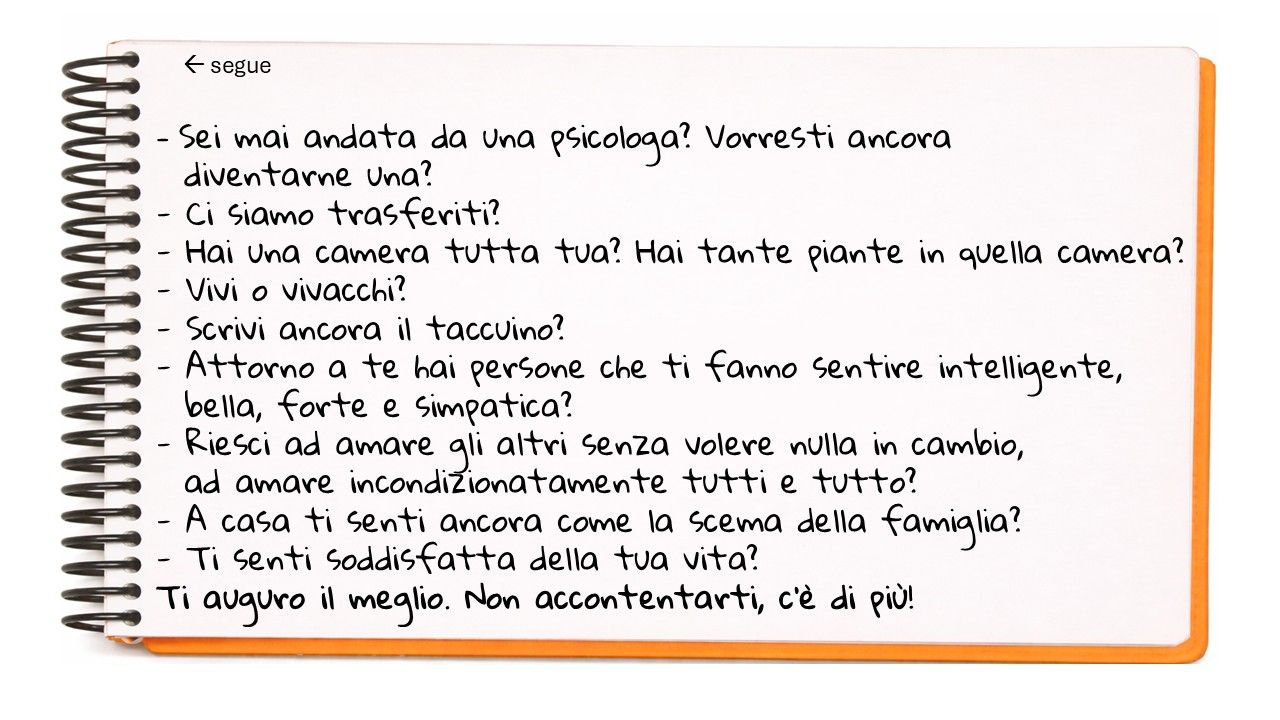 ← segue
- Sei mai andata da una psicologa? Vorresti ancora
diventarne una?
- Ci siamo trasferiti?
- Hai una camera tutta tua? Hai tante piante in quella camera?
- Vivi o vivacchi?
- Scrivi ancora il taccuino?
- Attorno a te hai persone che ti fanno sentire intelligente,
bella, forte e simpatica?
- Riesci ad amare gli altri senza volere nulla in cambio,
ad amare incondizionatamente tutti e tutto?
- A casa ti senti ancora come la scema della famiglia?
- Ti senti soddisfatta della tua vita?
Ti auguro il meglio. Non accontentarti, c'è di più!